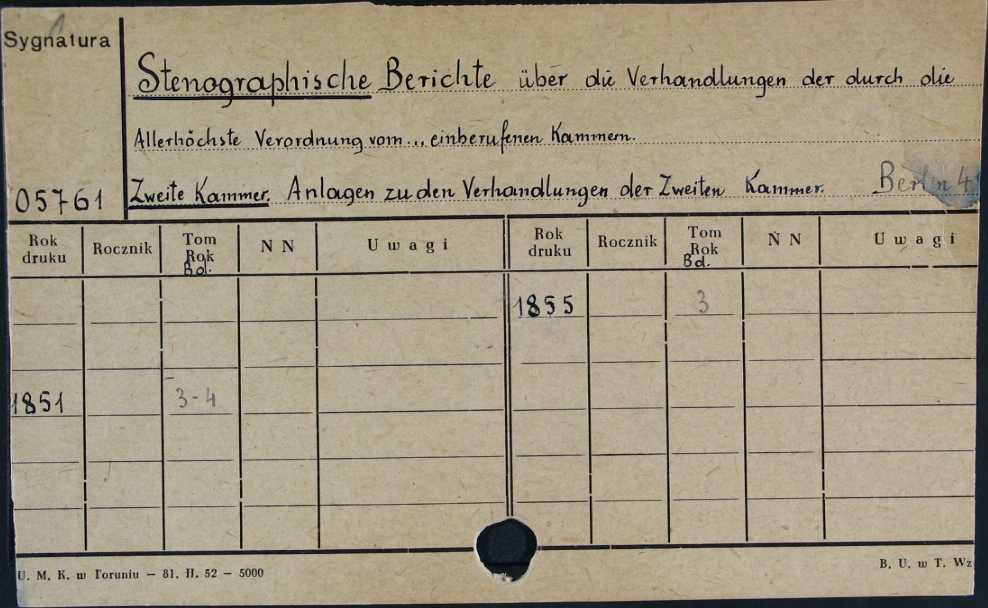 Sygnatura
Stenographische Berichte über die Verhandlungen der durch die
Allerhöchste Verordnung vom... einberufenen Kammern.
05761 Zweite Kammer. Anlagen zu den Verhandlungen der Zweiten Kammer. Berlin 4
Rok druku Rocznik Tom Rok Bd. N N Uwagi Rok druku Rocznik Tom Rok Bd. N N Uwagi
1855 3
1851 3-4
U. M. K. w Toruniu — 81. H. 52 — 5000 B. U. w T. Wz